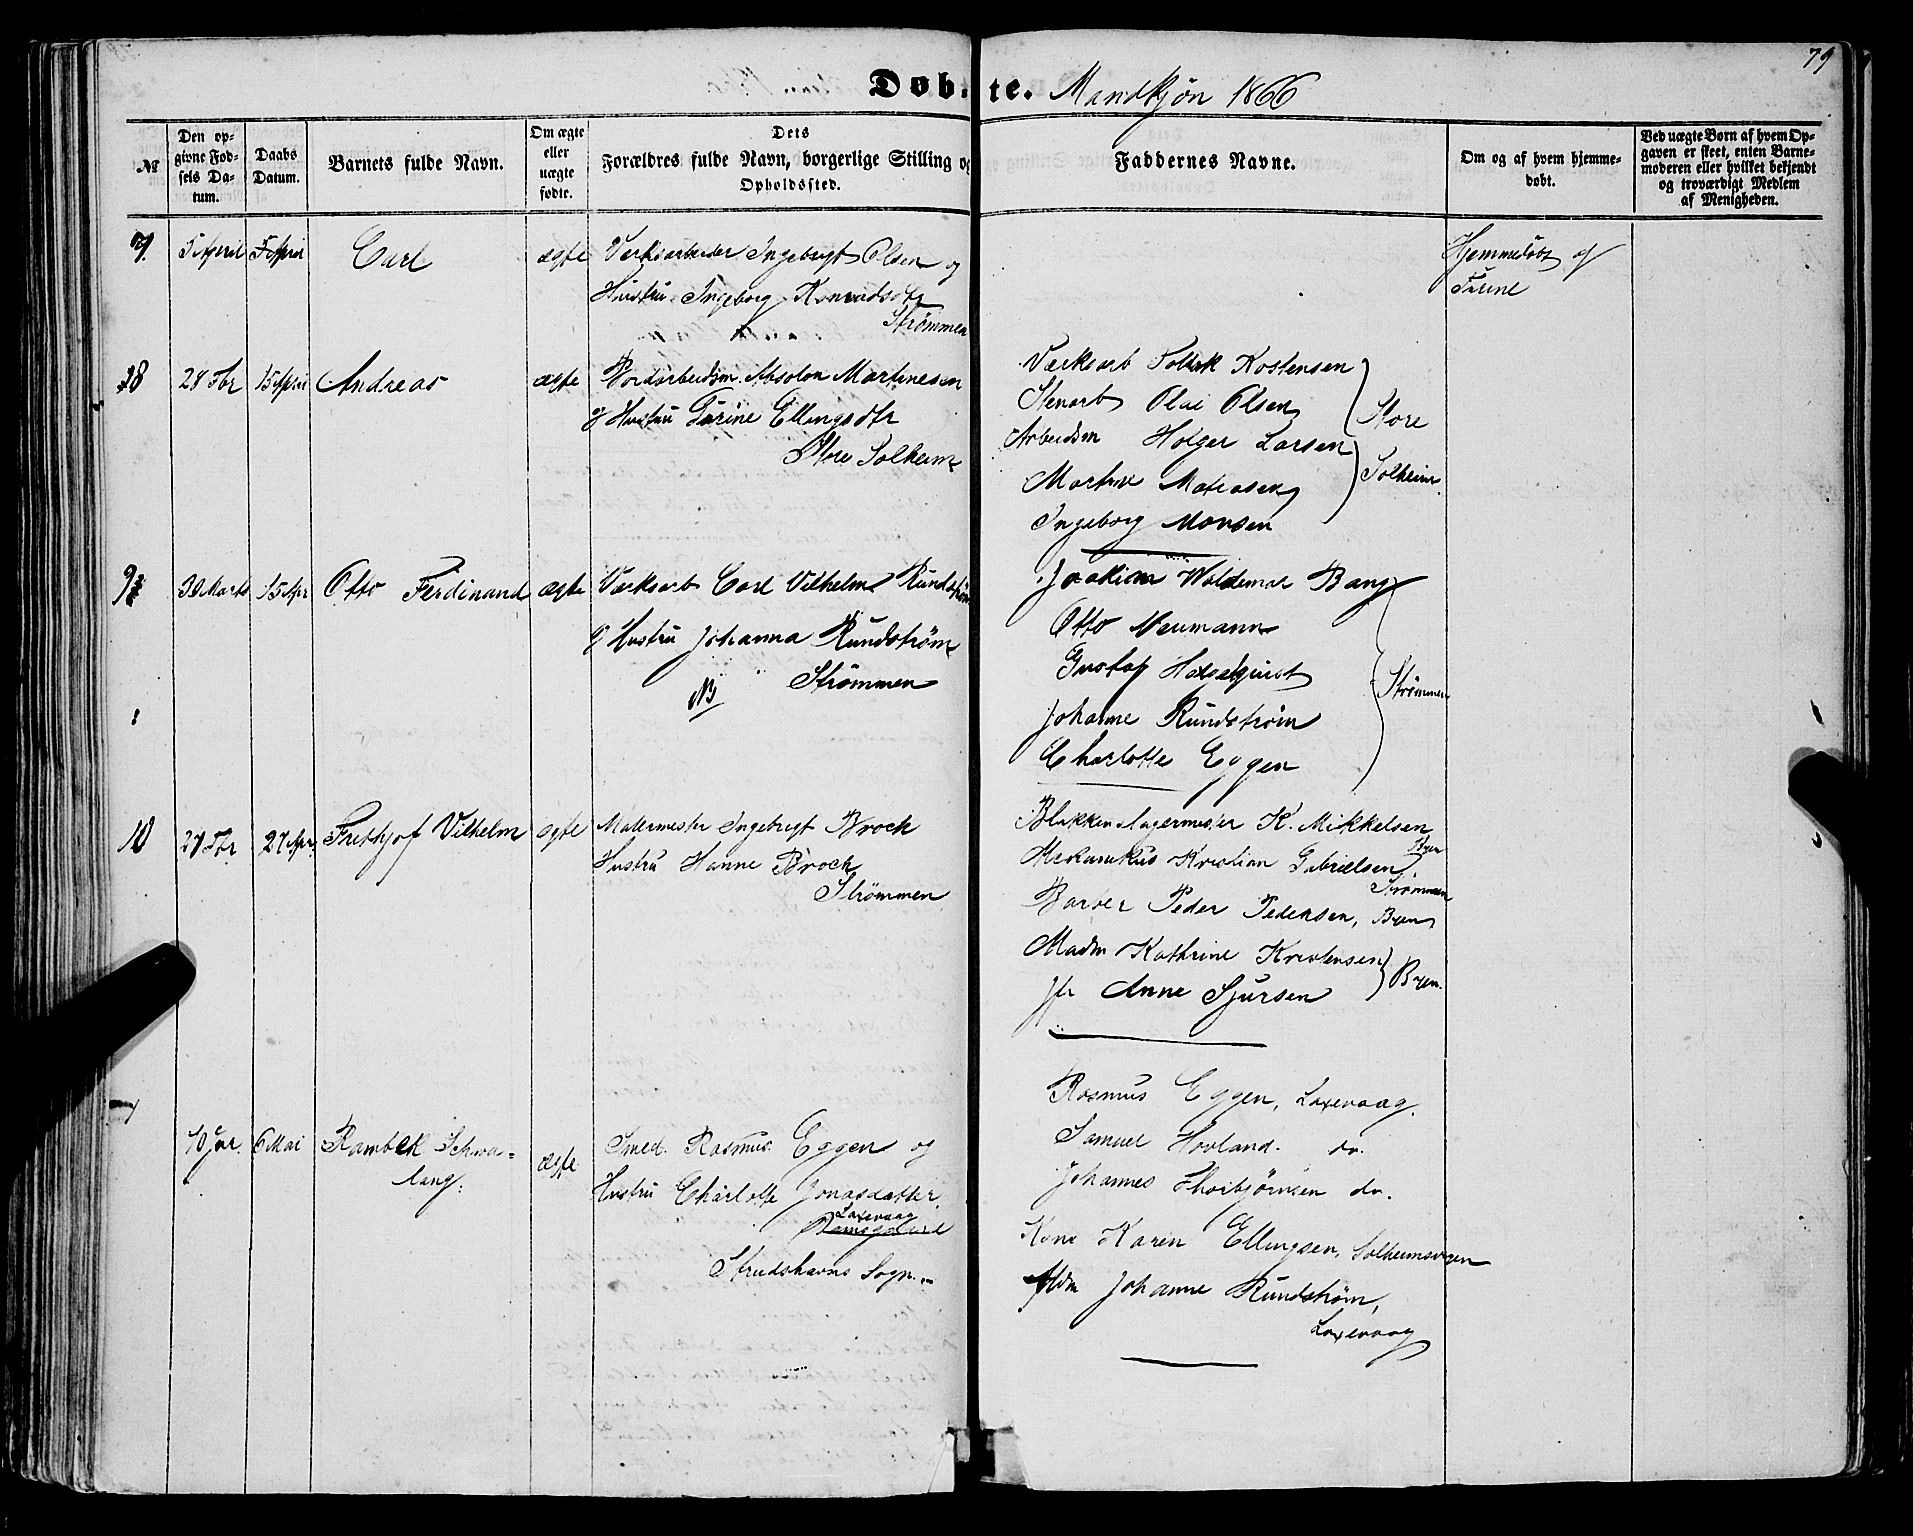 79
Døbte. Mandkjøn 1866
No
Den opgivne Fødsels Datum.
Daabs Datum.
Barnets fulde Navn.
Om ægte eller uægte fødte.
Dets Forældres fulde Navn, borgerlige Stilling og Opholdssted.
Faddernes Navne.
Om og af hvem hjemmedøbt.
Ved uægte Børn af hvem Opgaven er skeet, enten Barnemoderen eller hvilket bekjendt og troværdigt Medlem af Menigheden.
7. 5 April 5 April Carl ægte Værksarbeider Ingebrigt Olsen og
Hustru Ingeborg
Strømmen
Hjemmedøbt af
8 28 Fbr 15 April Andreas ægte Absolon Martinesen
og Hustru Turine Ellingsdtr
Store Solheim
Værksarb Kostensen
Stenarb Olai Olsen
Arbeidsm Holger Larsen
Store
Solheim
Ingeborg Monsen
9 30 Marts 15 Apr Otto Ferdinand ægte Værksarb Carl Vilhelm Rundstrøm
og Hustru Johanna Rundstrøm
Strømmen
NB
Joakim Woldemar Bang
Otto Neumann
Gustaf
Johanne Rundstrøm
Charlotte Eggen
Strømmen
10 27 Fbr 27 Apr. Frithjof Vilhelm ægte Malermester Ingebrigt Brock
Hustru Hanne Brock
Strømmen
K. Mikkelsen
Byen
Mekanikus Kristian Gabrielsen
Strømmen
Peder Pedersen, Byen
Madm Kathrine Kristensen
Jfr Anne Sjursen
Byen.
10 Jan. 6 Mai Rambek Schwa=
lang.
ægte Smed. Rasmus Eggen og
Hustru Charlotte Jonasdatter.
Laxevaag
Strudshavns Sogn.
Rasmus Eggen, Laxevaag.
Samuel Hovland. do.
Johannes Thorbjørnsen do.
Kone Karen Ellingsen, Solheimsvigen
Mdm Johanne Rundstrøm,
Laxevaag